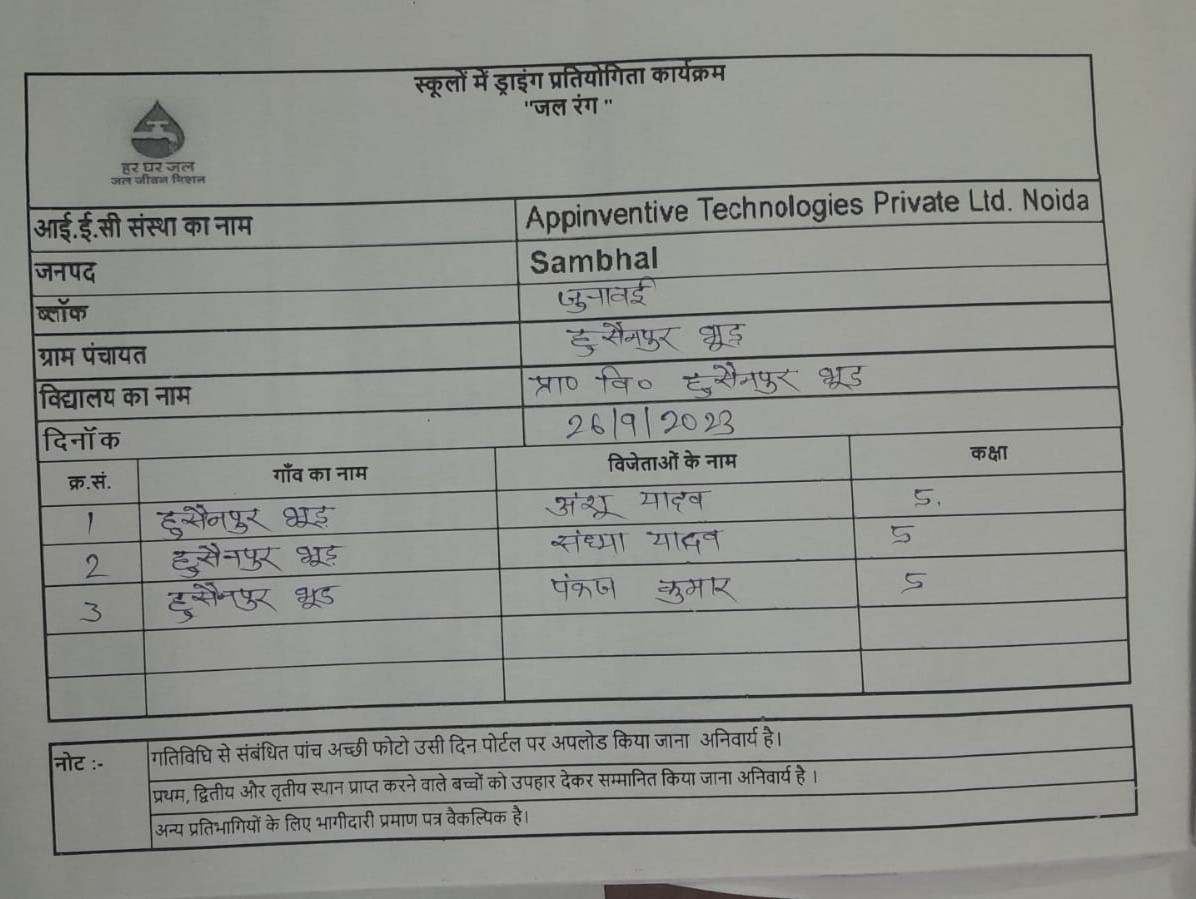 स्कूलों में ड्राइंग प्रतियोगिता कार्यक्रम
"जल रंग "
हर घर जल
जल जीवन मिशन
आई.ई.सी संस्था का नाम Appinventive Technologies Private Ltd. Noida
जनपद Sambhal
ब्लॉक जुनावई
ग्राम पंचायत हुसैनपुर भूड़
विद्यालय का नाम प्रा० वि० हुसैनपुर भूड
दिनॉक 26/9/2023
क्र.सं. गाँव का नाम विजेताओं के नाम कक्षा
1 हुसैनपुर भूड़ अंशू यादव 5.
2 हुसैनपुर भूड़ संध्या यादव 5
3 हुसैनपुर भूड पंकज कुमार 5
नोट :- गतिविधि से संबंधित पांच अच्छी फोटो उसी दिन पोर्टल पर अपलोड किया जाना अनिवार्य है।
प्रथम, द्वितीय और तृतीय स्थान प्राप्त करने वाले बच्चों को उपहार देकर सम्मानित किया जाना अनिवार्य है ।
अन्य प्रतिभागियों के लिए भागीदारी प्रमाण पत्र वैकल्पिक है।